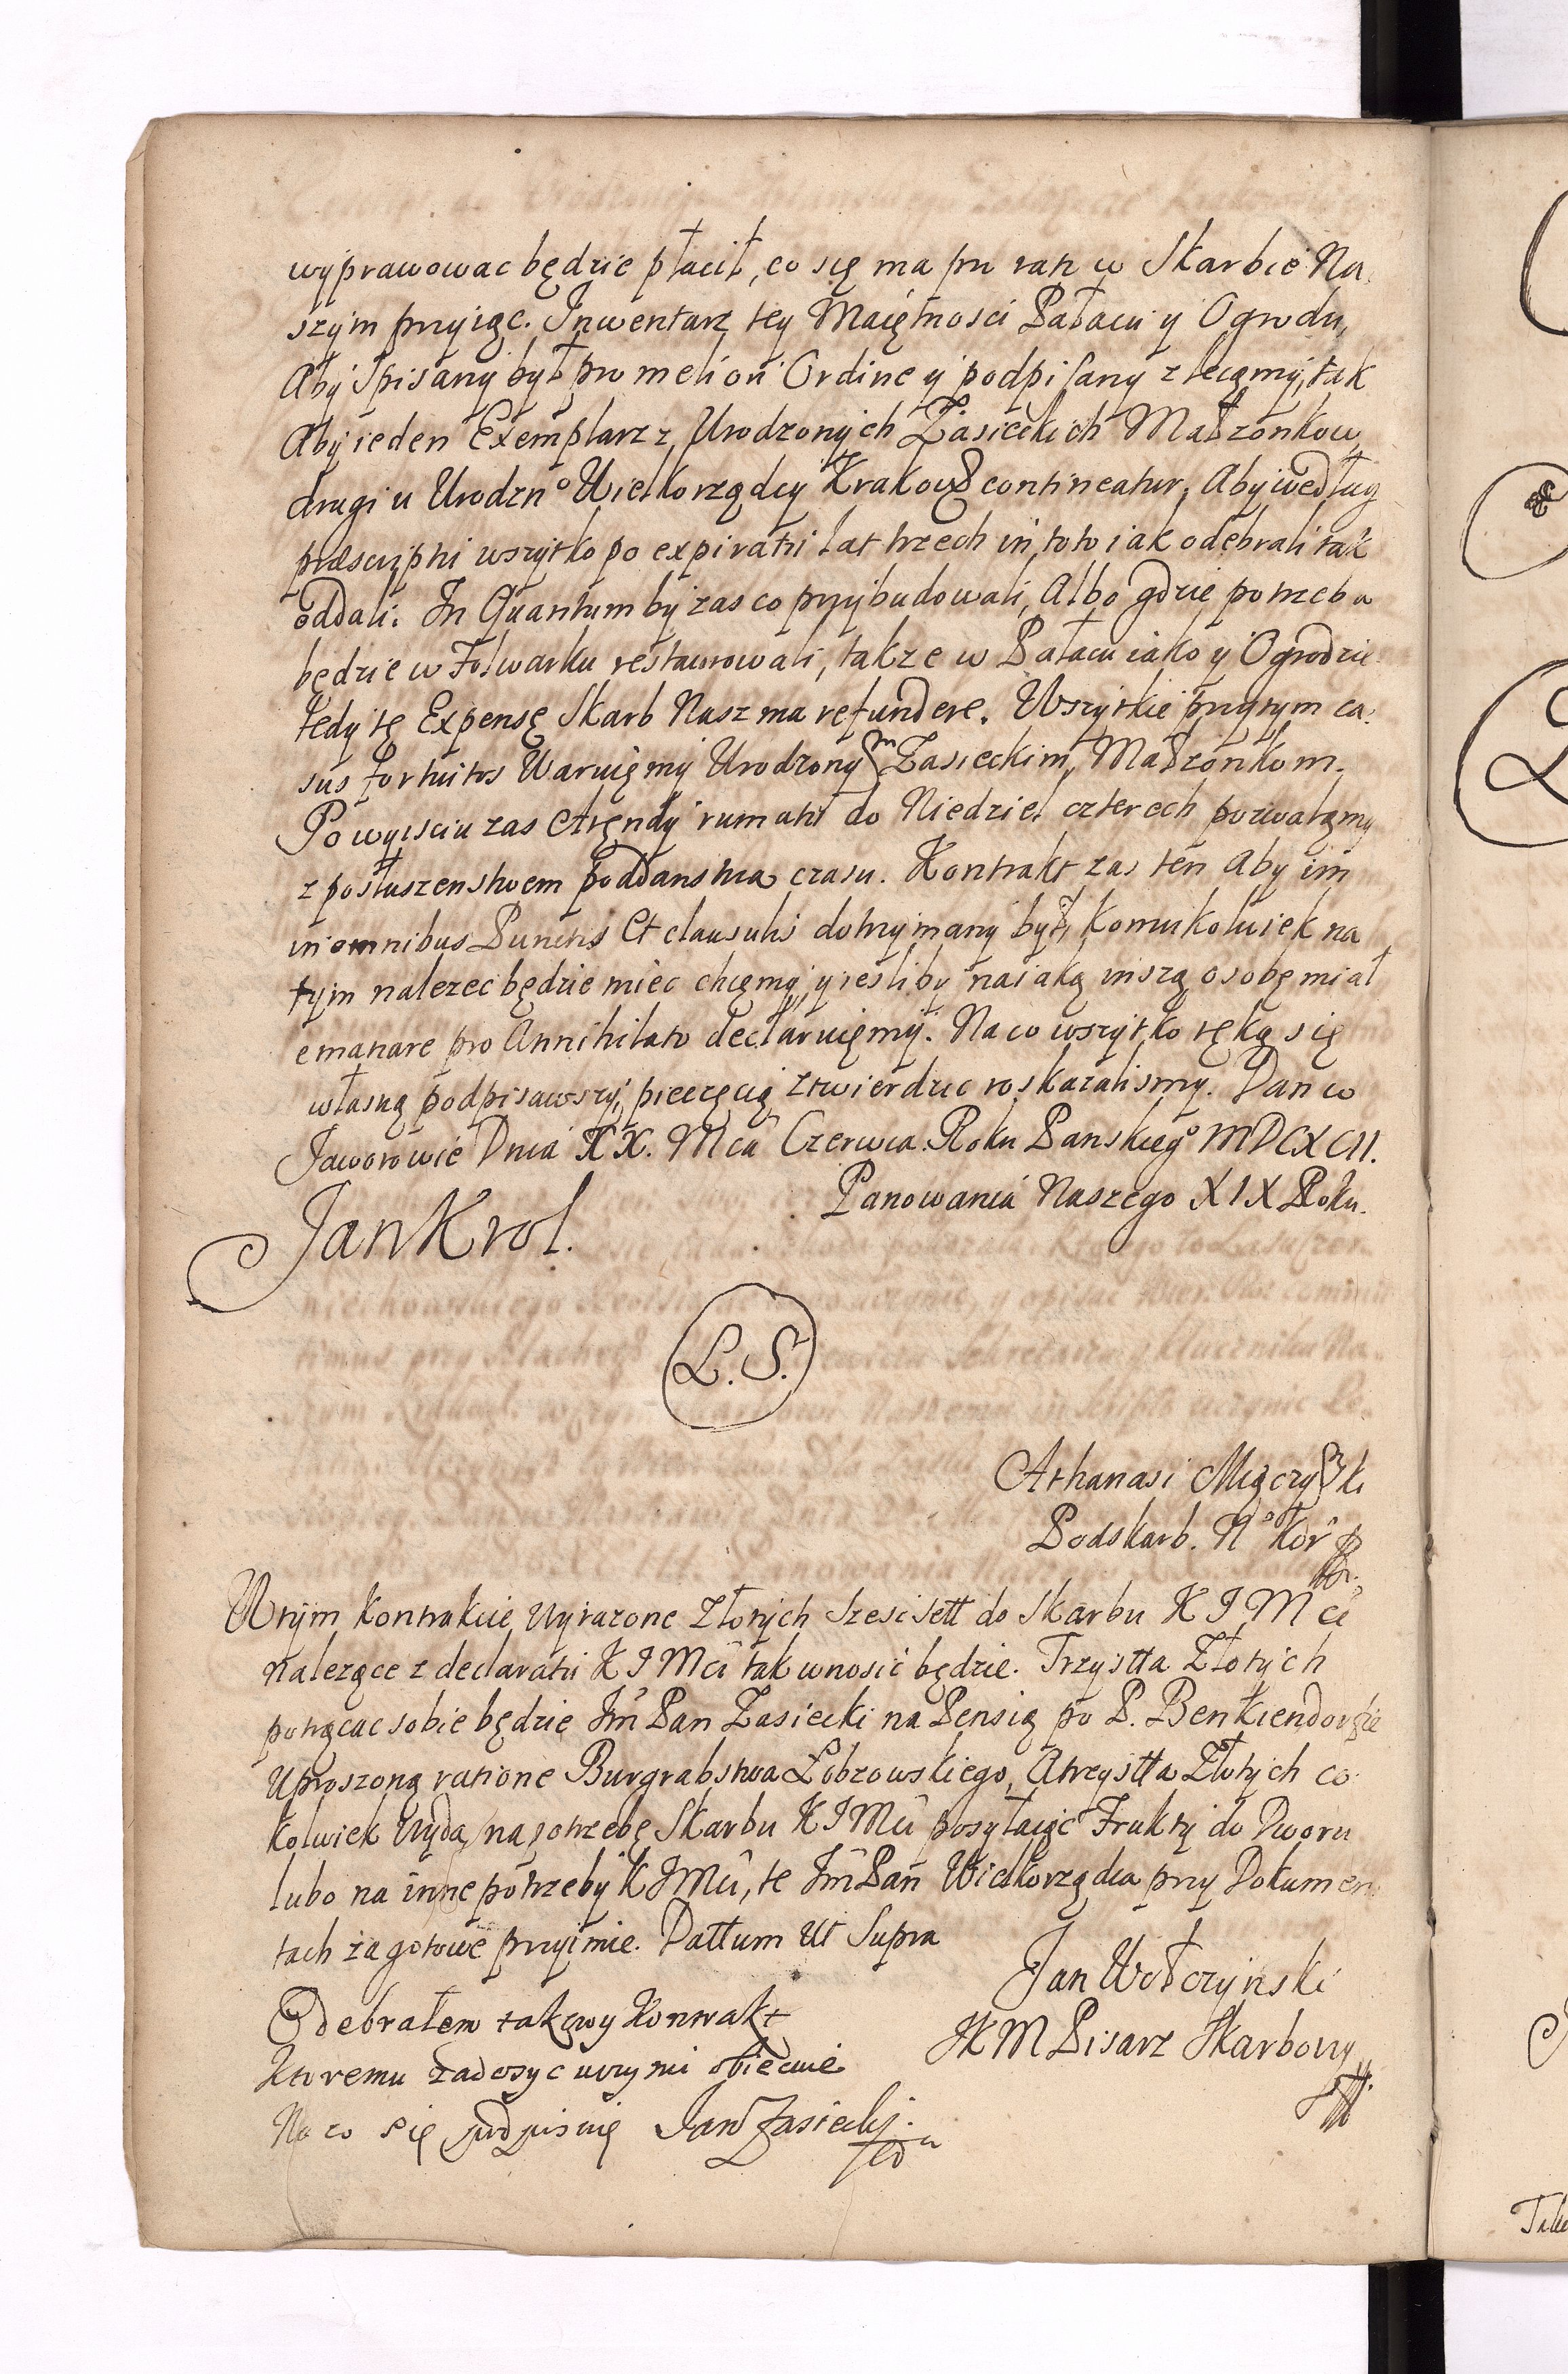 wyprawowac będzie płacił, co się ma pro rata w Skarbie Na
szym przyiąc. Inwentarz tey Maiętnosci Pałacu y Ogrodu,
Aby Spisany był pro meliori Ordine y podpisany zlecamy, tak
Aby ieden Exemplarz z Urodzonych Zasieckich Małzonkow
drugi u Urodzno Wielkorządcy Krakows contineatur, Aby według
præscripti wszytko po expiratii lat trzech in toto iak odebrali tak
oddali. In Quantum by zas co przybudowali, Albo gdzie potrzeba
będzie w Folwarku restaurowali, takze w Pałacu iako y Ogrodzie
tedy tę Expensę Skarb Nasz ma refundere. Wszytkie przytym ca.
sus fortuitos Waruięmy Urodzonym Zasieckim Małzonkom.
Po wyisciu zas Aręndy rumatii do Niedziel czterech pozwalęmy
z posłuszenstwem poddanstwa czasu. Kontrakt zas ten Aby im
in omnibus Punctis Et clausulis dotrzymany był, komukolwiek na
tym nalezec będzie miec chcęmy, y iesliby na iaką inszą osobę miał
emanare pro Annihilato declaruięmy. Na co wszytko ręką się
własną podpisawszy, pieczęcią ztwierdzic roskazalismy. Dan w
Jaworowie Dnia XX. Mca Czerwca Roku Panskiego MDCXCII.
Panowania Naszego XIX Roku.
Jan Krol.
L. S.
Athanasi Miączyński
Podskarb. No Kor
W tym kontrakcie Wyrazone Złotych szescsett do Skarbu K J Mci
nalezące z declaratii K J Mci tak wnosic będzie. Trzystta Złotych
potrącac sobie będzie Im Pan Zasiecki na Pensią po P. Benkiendorfie
Uproszoną ratione Burgrabstwa Łobzowskiego, A trzystta Złotych co
kolwiek Wyda na potrzebę Skarbu K J Mci posyłaiąc Frukty do Dworu
lubo na inne potrzeby K J Mci, te Im Pan Wielkorządca przy Dokumen
tach za gotowe przyimie. Dattum Ut Supra
Jan Wołczynski
J K M Pisarz Skarbowy
Odebrałem takowy Kontrakt
Ktoremu zadosyc uczynic obiecuie
Na co się podpisuię Jan Zasiecki